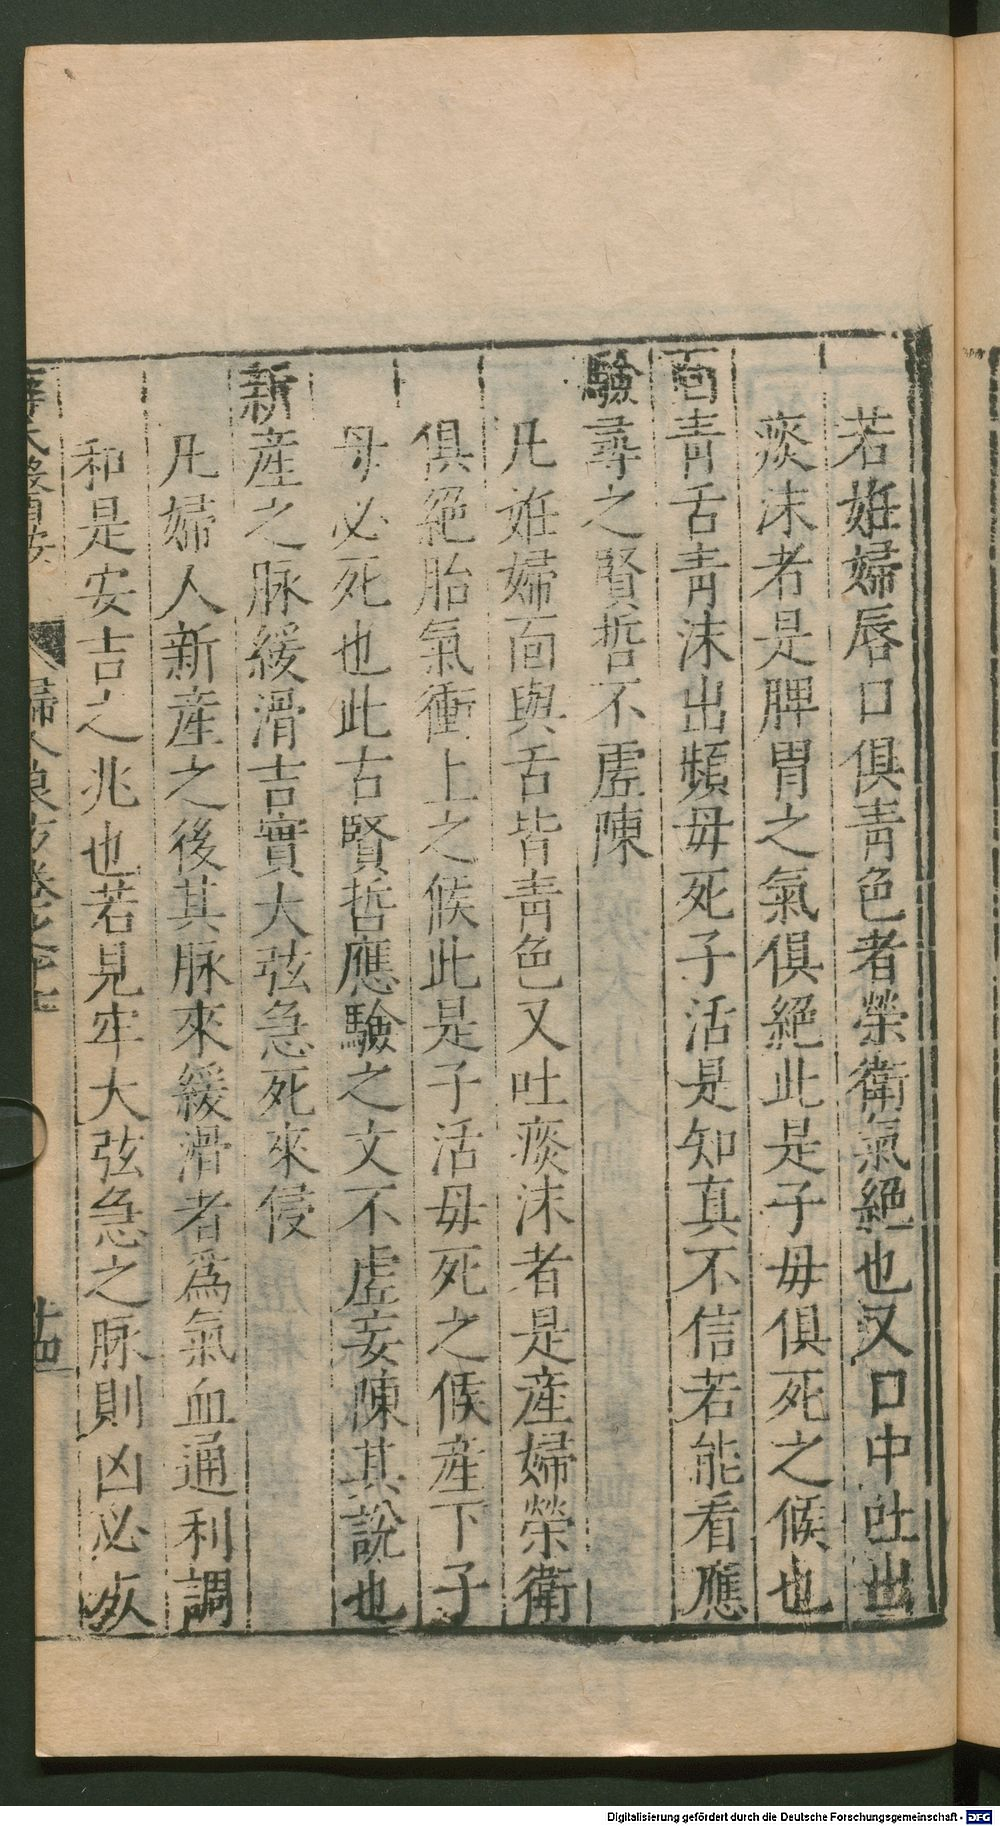 若姙婦唇口俱青色者榮衛氣絕也又口中吐出
痰沫者是脾胃之氣俱絕此是子母俱死之候也
面青舌青沫出頻母死子活是知真不信若能看應
驗尋之賢哲不虛陳
凡姙婦面與舌皆青色又吐痰沫者是産婦榮衛
俱絕胎氣衝上之候此是子活母死之候産下子
母必死也此古賢哲應驗之文不虛妄陳其說也
新産之脉緩滑吉實大弦急死來侵
凡婦人新産之後其脉來緩滑者為氣血通利調
和是安吉之兆也若見牢大弦急之脉則凶必死
婦人良方卷之
Digitalisierung gefördert durch die Deutsche Forschungsgemeinschaft - DFG